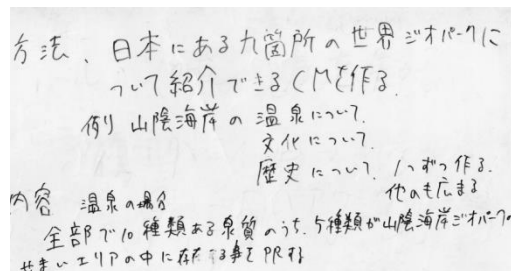 方法、日本にある九箇所の世界ジオパークに
ついて紹介できるCMを作る.
例 山陰海岸の温泉について.
文化について.
歴史について. 1つずつ作る.
他のも広まる
内容 温泉の場合
全部で10種類ある泉質のうち、5種類が山陰海岸ジオパークの
せまいエリアの中に存在する事をPRする